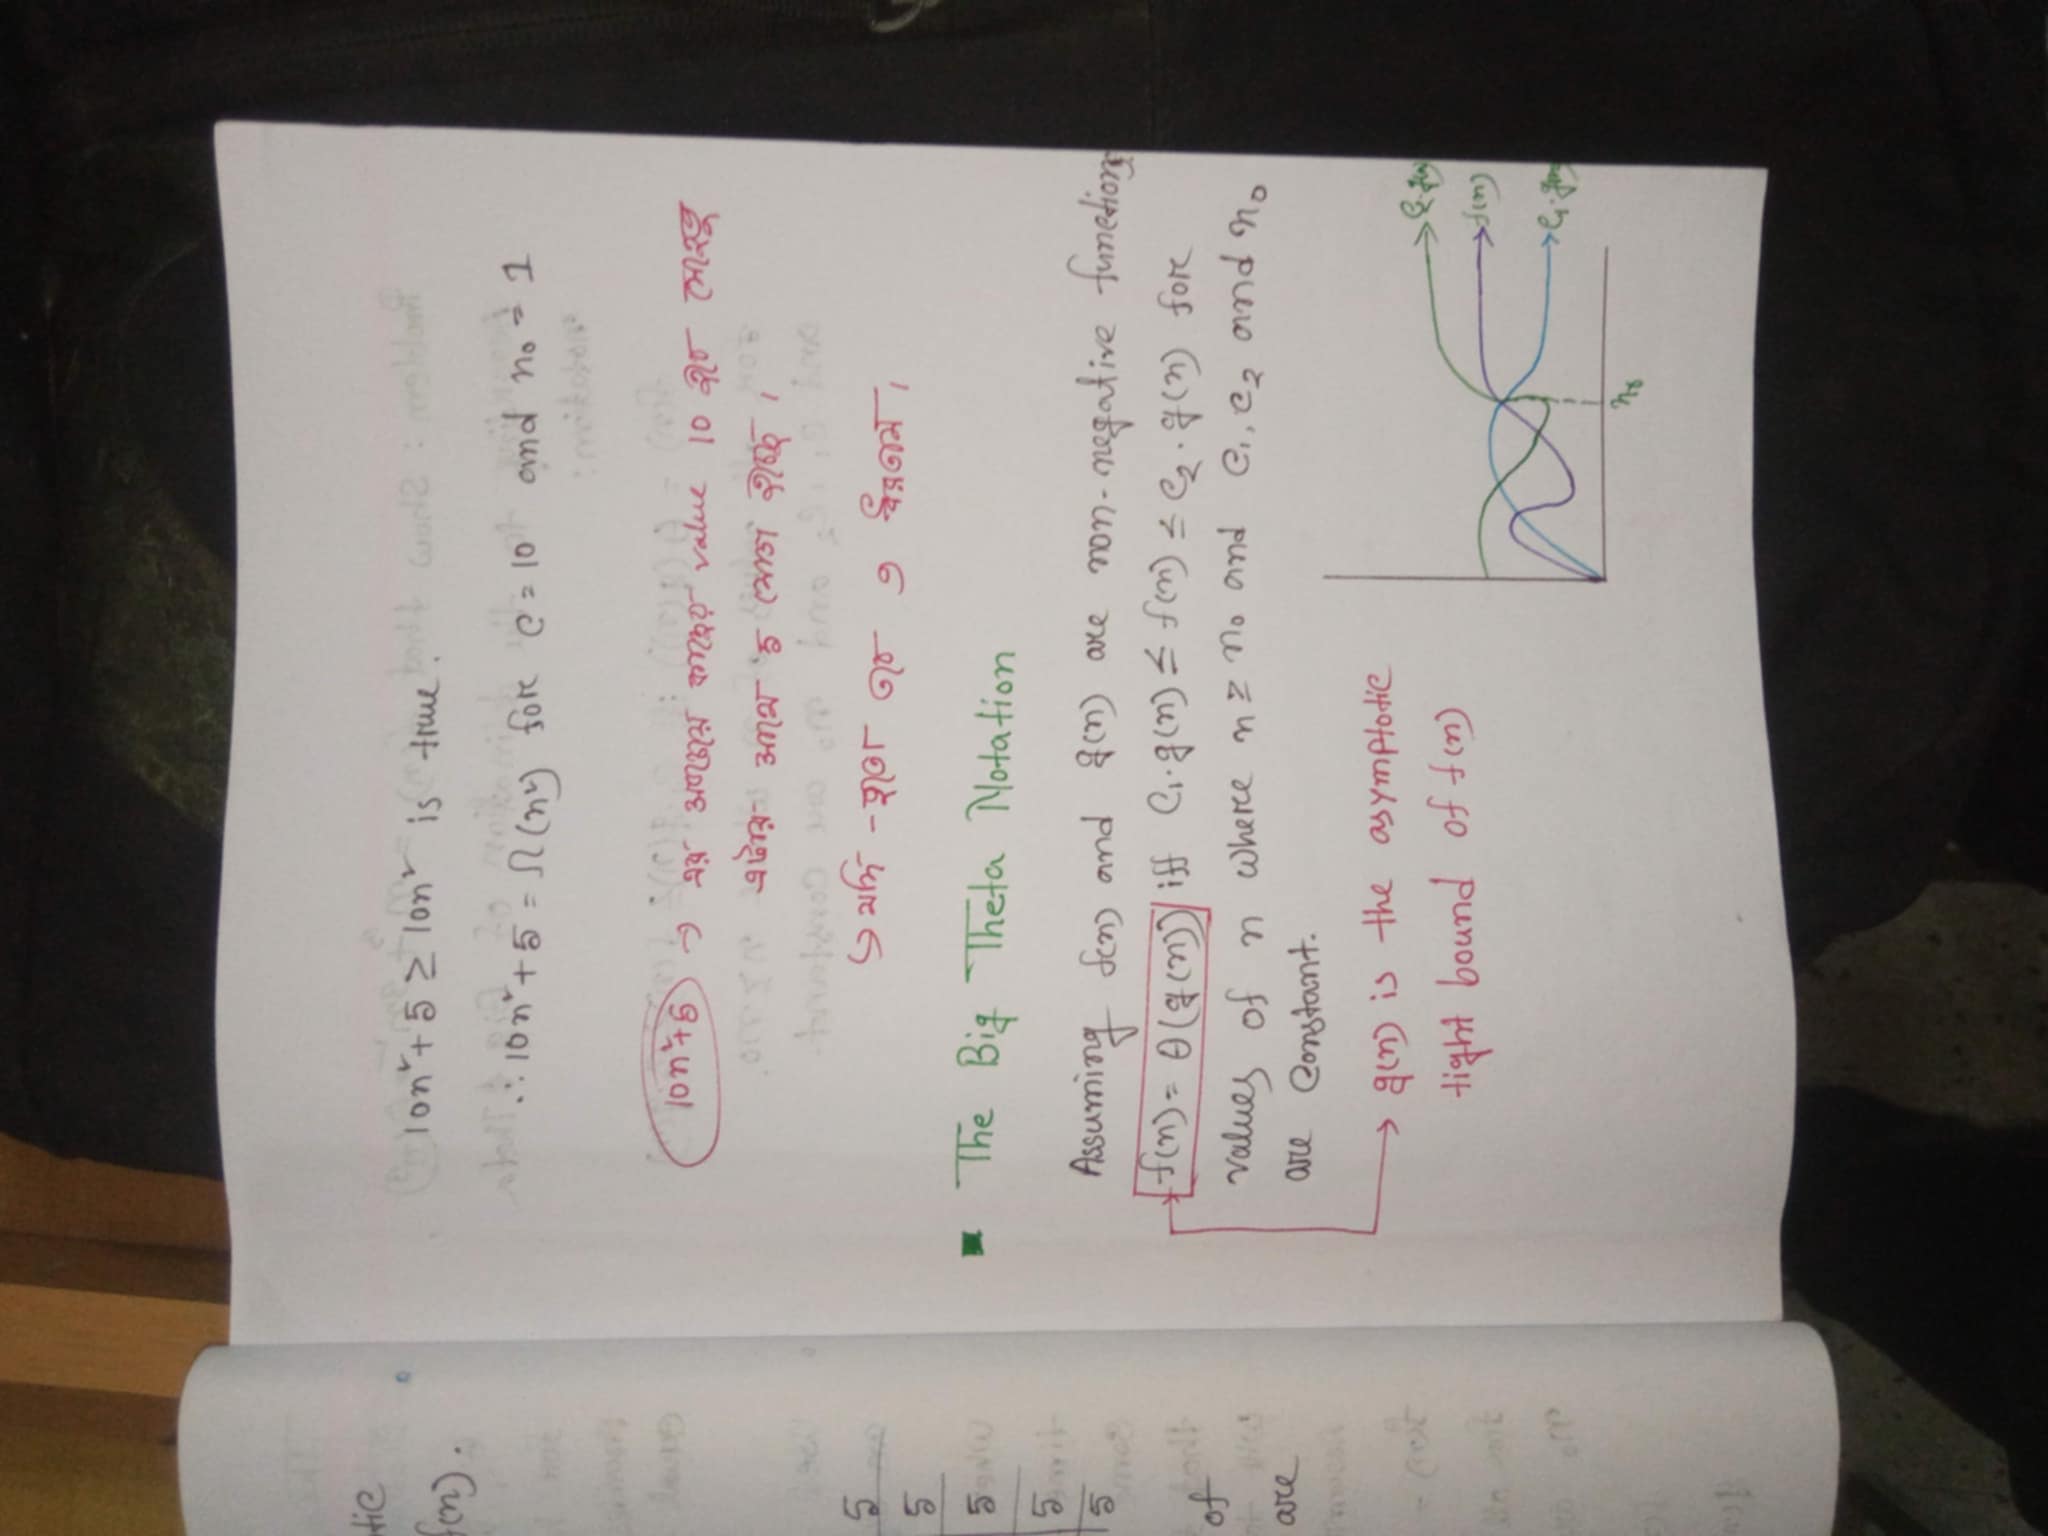 tic
f(n).
5
5
5
5
5
of
are
10n² + 5 ≥ 10n² is true.
∴ 10n² + 5 = Ω(n²) for c = 10 and n₀ = 1
10n²+5 → এর সবচেয়ে কাছের value 10 হবে যেহেতু
এটার সাথে 5 যোগ হচ্ছে।
↳ যদি - হতো তবে ৩ ধরতাম।
■ The Big Theta Notation
Assuming f(n) and g(n) are non-negative functions
f(n) = θ(g(n)) iff C₁.g(n) ≤ f(n) ≤ C₂.g(n) for
values of n where n ≥ n₀ and C₁, C₂ and n₀
are constant.
→ g(n) is the asymptotic
tight bound of f(n)
C₂.g(n)
f(n)
C₁.g(n)
n₀